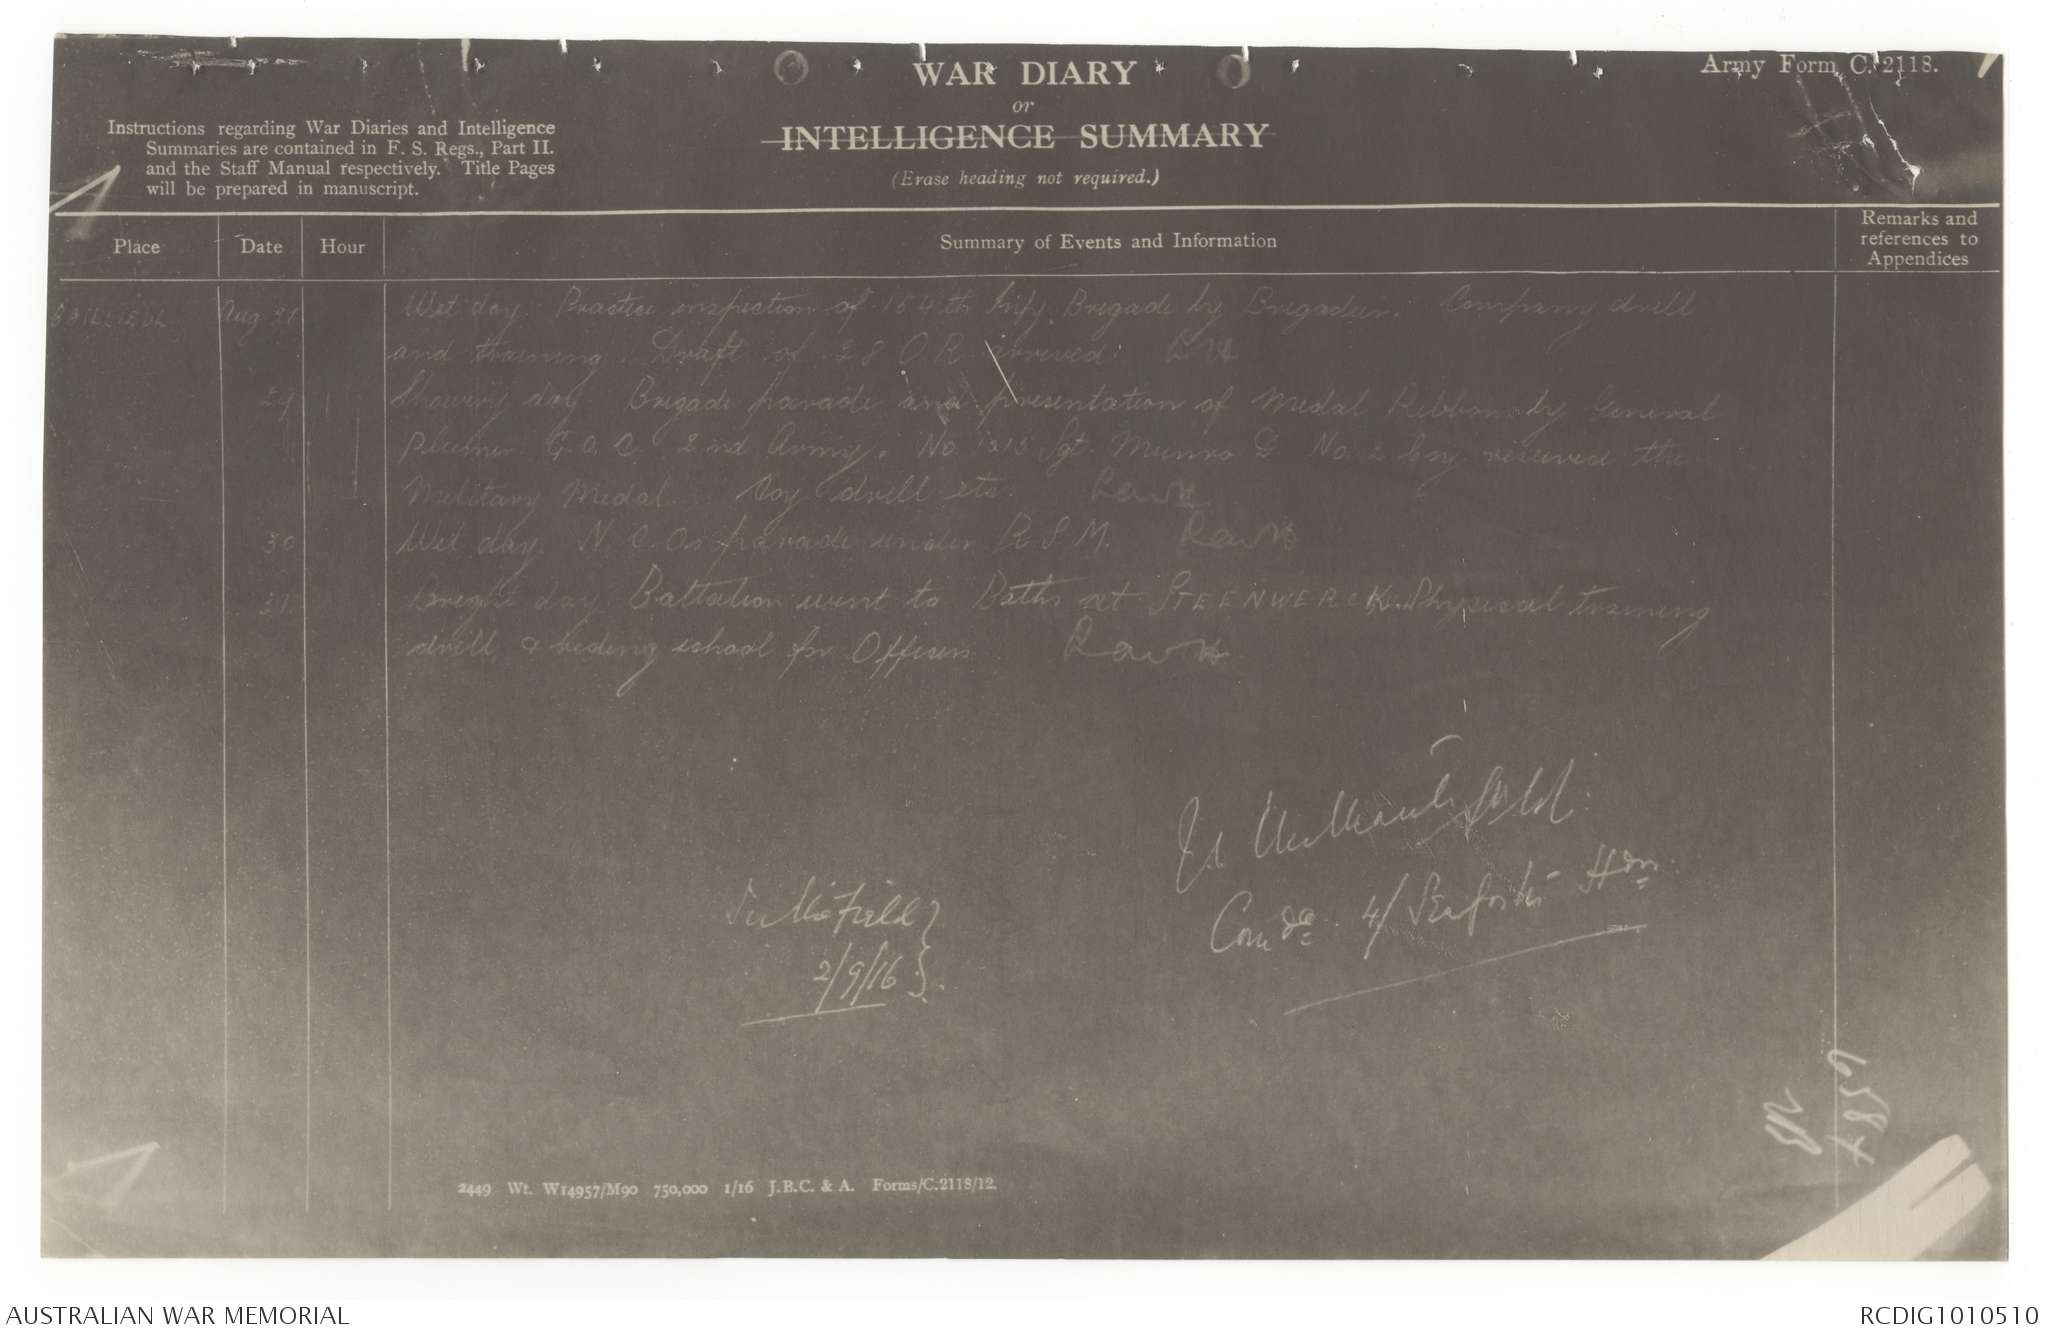 Army Form C. 2118.
WAR DIARY
or
INTELLIGENCE SUMMARY
(Erase heading not required.)
Instructions regarding War Diaries and Intelligence
Summaries are contained in F. S. Regs., Part II.
and the Staff Manual respectively. Title Pages
will be prepared in manuscript.
Place Date Hour Summary of Events and Information Remarks and
references to
Appendices
Aug Wet day. Practice inspection of 154th Infy. Brigade by Brigadier. Company drill
and training. Draft of 28 O.R. arrived.
29 Showery day. Brigade parade and presentation of Medal Ribbons by General
Plumer G.O.C. 2nd Army. No. 1215 Sgt. Munro G. No. 2 Coy received the
Military Medal. Coy drill etc.
30 Wet day. N.C.Os parade under R.S.M.
31 Bright day Battalion went to Baths at STEENWERCK. Physical training
drill, & riding school for Officers
Comdg 4/ Seaforth Hdrs
In the Field }
2/9/16 }
2449 Wt. W14957/M90 750,000 1/16 J.B.C. & A. Forms/C.2118/12.
AUSTRALIAN WAR MEMORIAL
RCDIG1010510